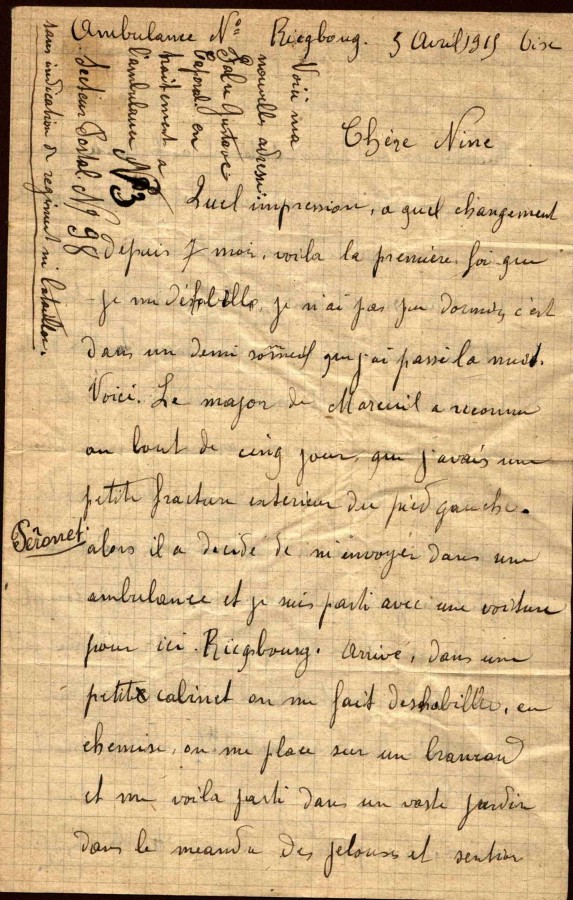 Ambulance Nº Ricqbourg. 5 Avril 1915 Oise
Voici ma
nouvelle adresse:
Gustave
Caporal en
traitement a
l'ambulance Nº 3
Secteur Postal. Nº 98
sans indication de regiment ni bataillon.
Chère Nine
Quel impression, a quel changement
depuis 7 mois, voila la première foi que
je me déshabille, je n'ai pas pu dormir, c'est
dans un demi sommeil que j'ai passé la nuit.
Voici. Le major de Mareuil a reconnu
au bout de cinq jour, que j'avais une
petite fracture exterieur du pied gauche.
Péronet
alors il a décidé de m'envoyer dans une
ambulance et je suis parti avec une voiture
pour ici. Ricqsbourg. Arrivé, dans une
petite cabinet on me fait deshabiller, en
chemise, on me place sur un brancard
et me voila parti dans un vaste jardin
dans le meandre des pelouses et sentier